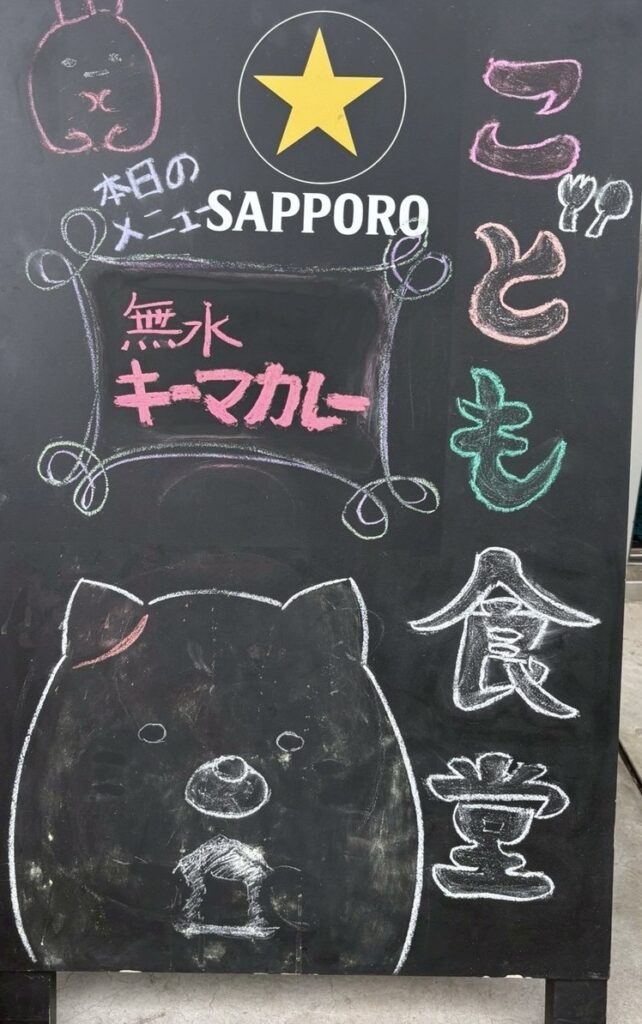 こども食堂
SAPPORO
本日の
メニュー
無水
キーマカレー